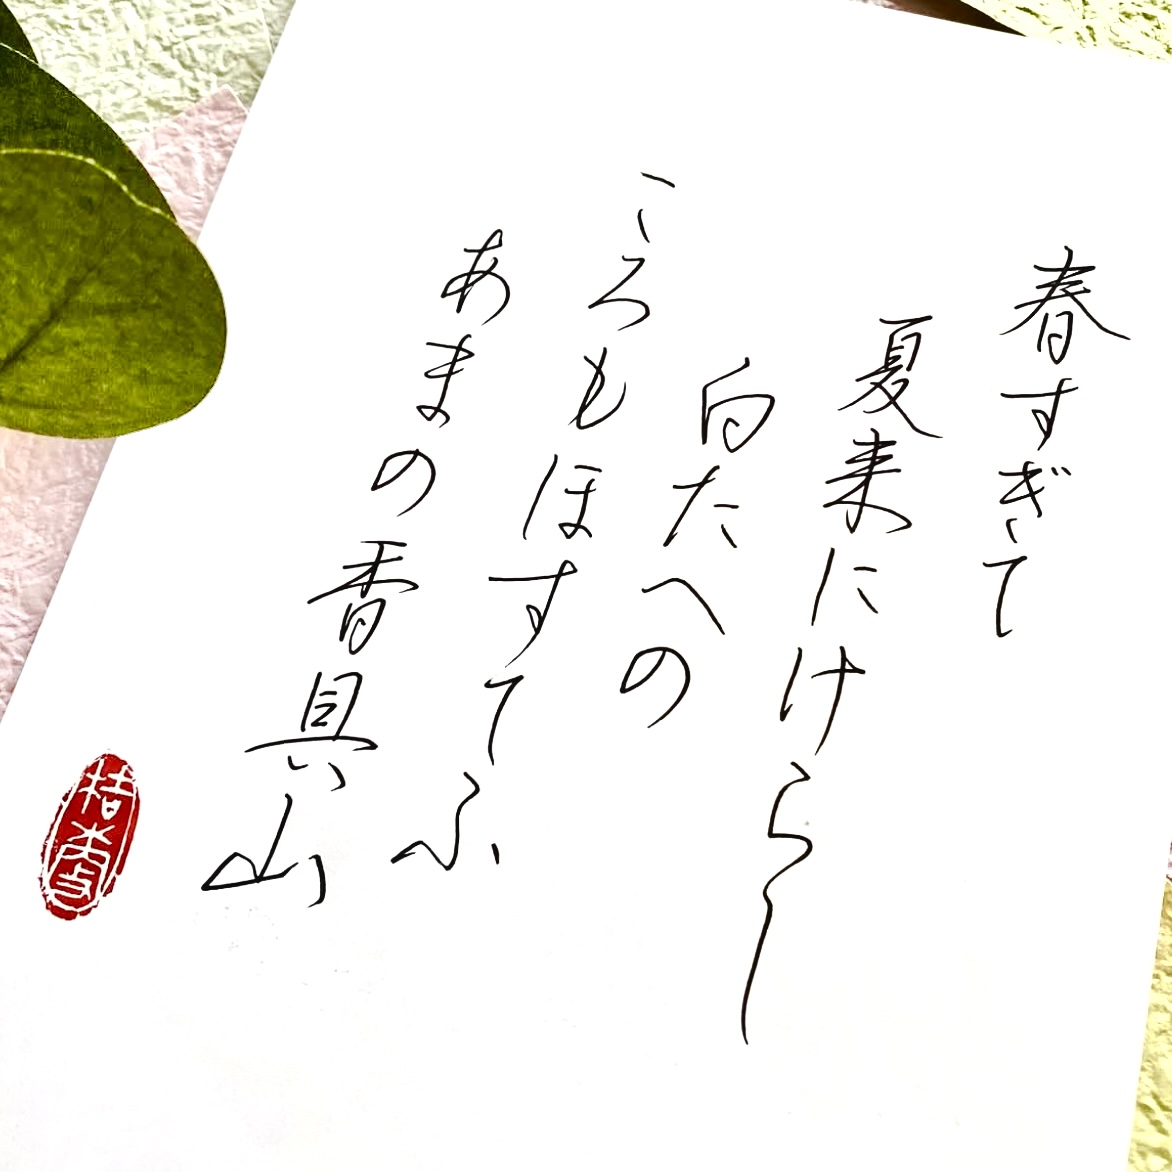 春すぎて
夏来にけらし
白たへの
ころもほすてふ
あまの香具山